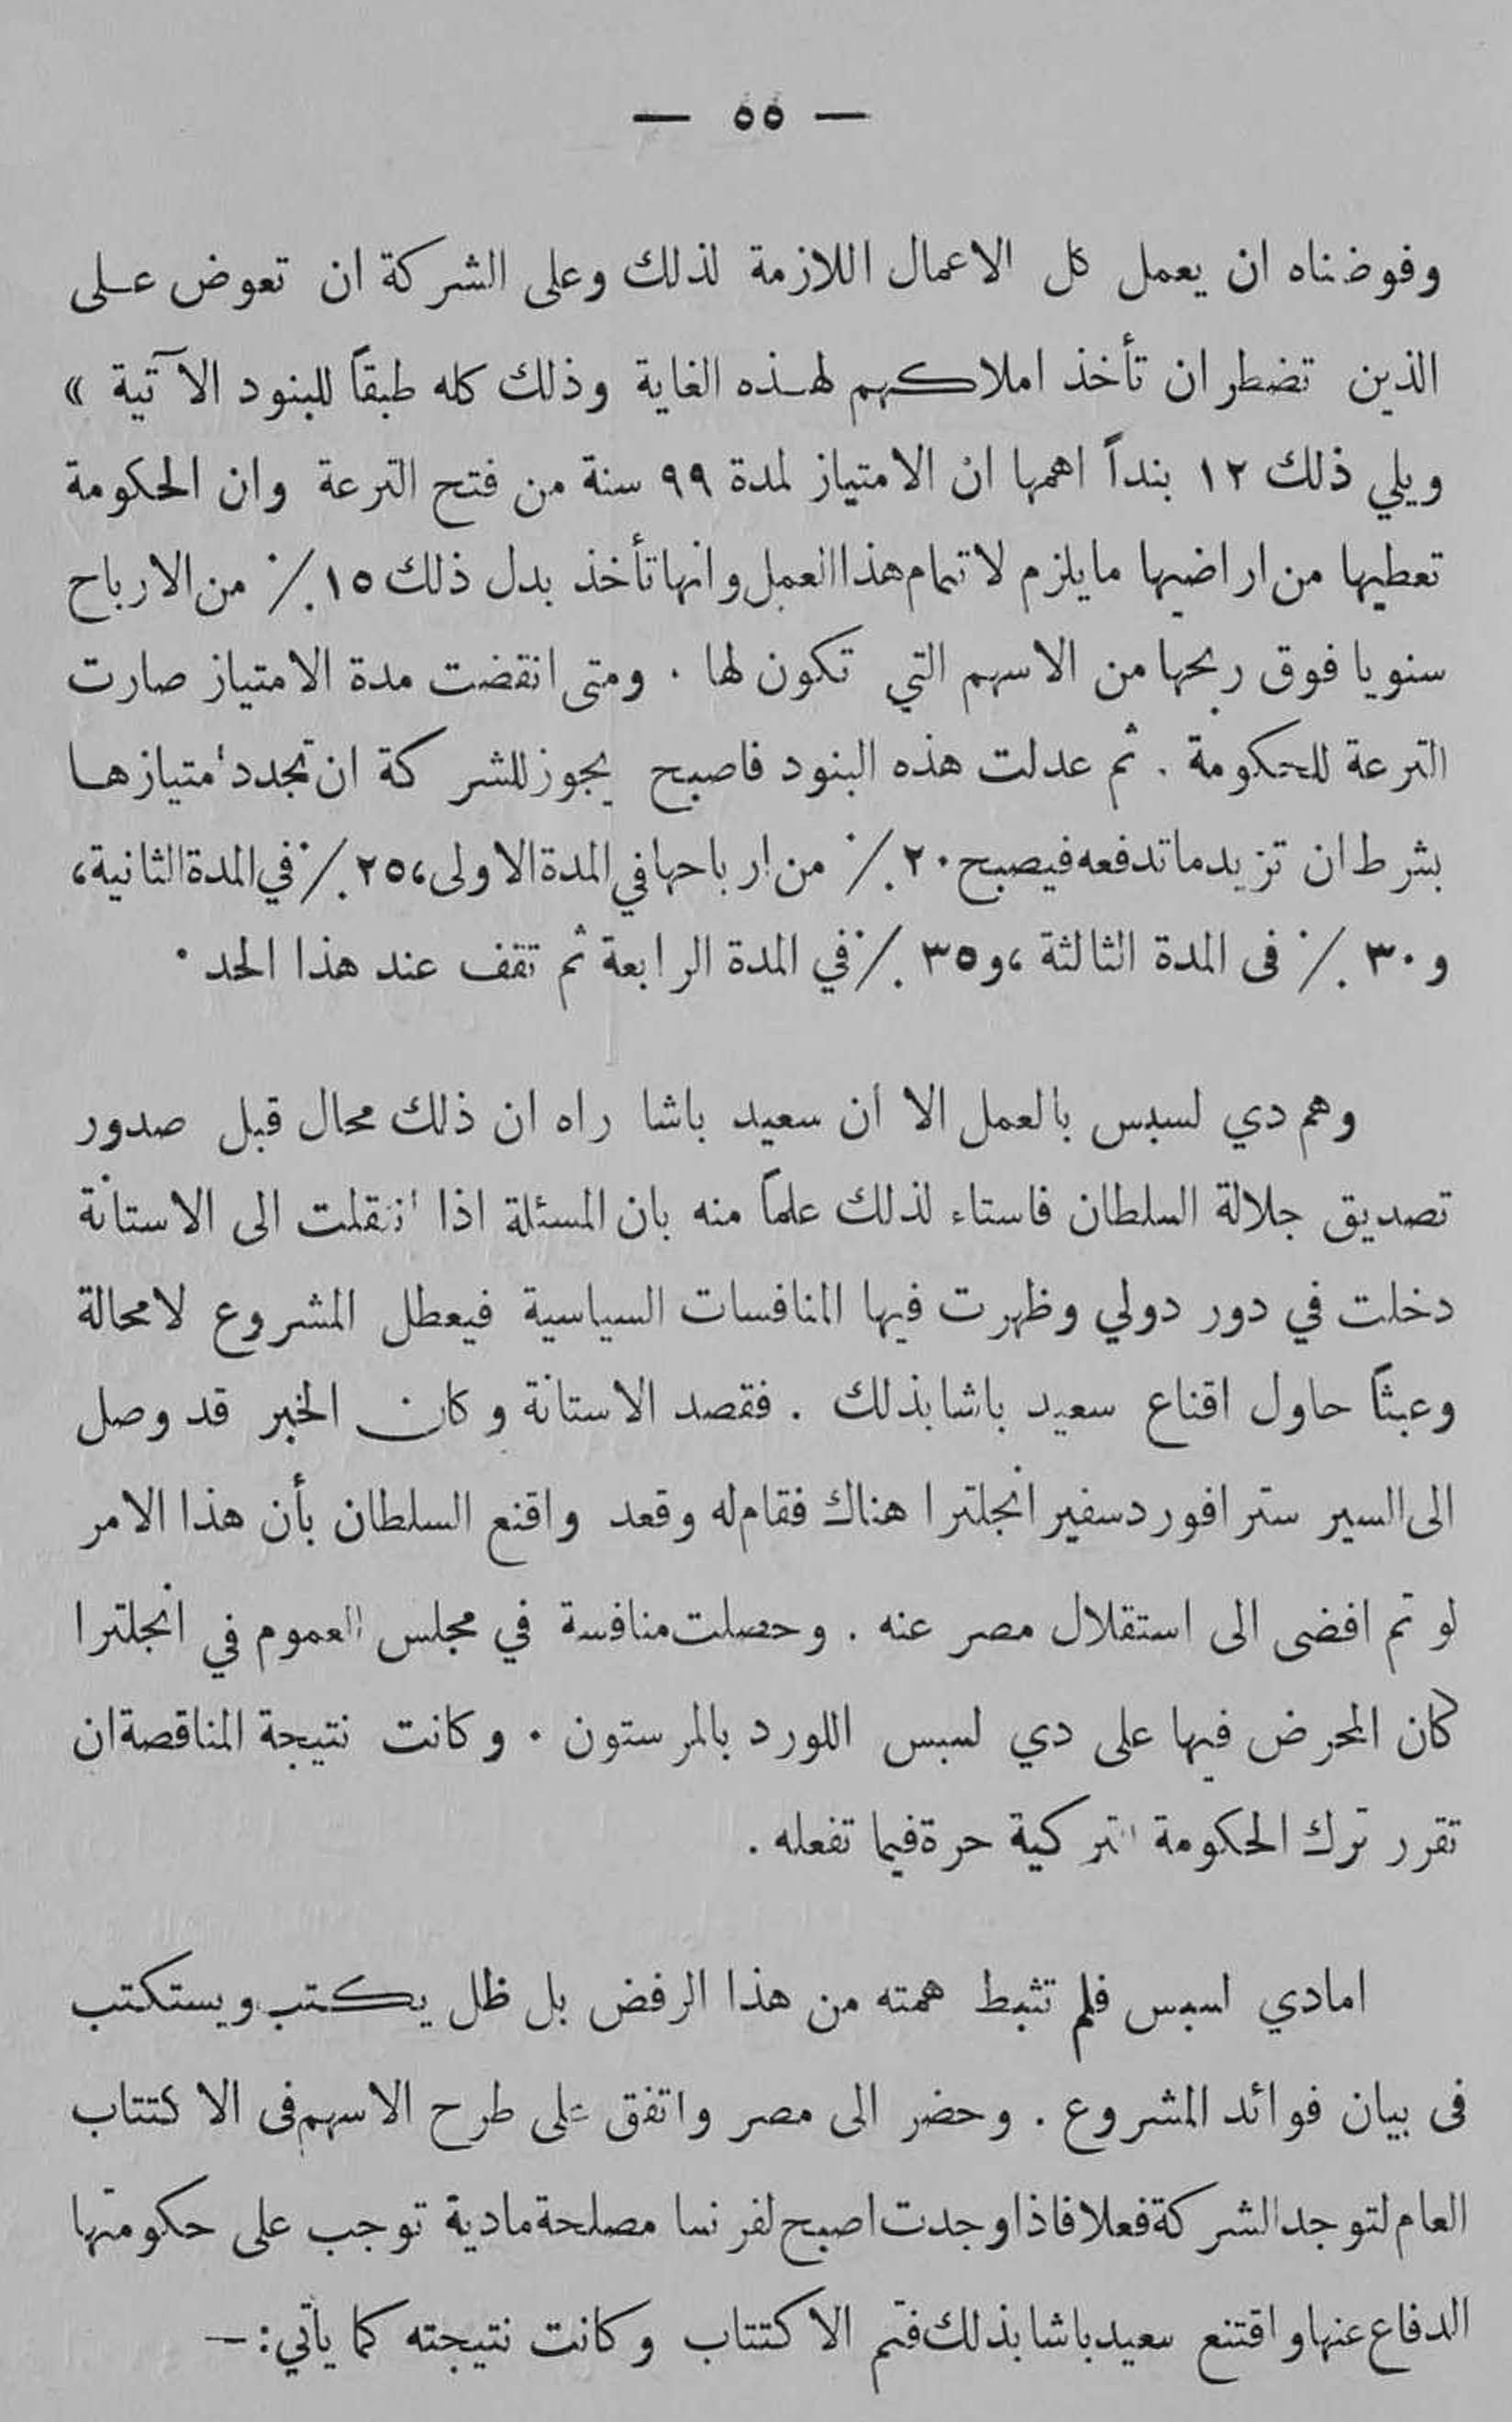 — ٥٥ —
وفوضناه ان يعمل كل الاعمال اللازمة لذلك وعلى الشركة ان تعوض على
الذين تضطر ان تأخذ املاكهم لهذه الغاية وذلك كله طبقاً للبنود الآتية »
ويلي ذلك ١٢ بنداً اهمها ان الامتياز لمدة ٩٩ سنة من فتح الترعة وان الحكومة
تعطيها من اراضيها ما يلزم لاتمام هذا العمل وانها تأخذ بدل ذلك ١٥ ٪ من الارباح
سنويا فوق ربحها من الاسهم التي تكون لها . ومتى انقضت مدة الامتياز صارت
الترعة للحكومة . ثم عدلت هذه البنود فاصبح يجوز للشركة ان تجدد امتيازها
بشرط ان تزيد ما تدفعه فيصبح ٢٠ ٪ من ارباحها في المدة الاولى، ٢٥ ٪ في المدة الثانية،
و٣٠ ٪ فى المدة الثالثة ،و٣٥ ٪ في المدة الرابعة ثم تقف عند هذا الحد .
وهم دي لسبس بالعمل الا أن سعيد باشا راه ان ذلك محال قبل صدور
تصديق جلالة السلطان فاستاء لذلك علماً منه بان المسئلة اذا انتقلت الى الاستانة
دخلت في دور دولي وظهرت فيها المنافسات السياسية فيعطل المشروع لا محالة
وعبثاً حاول اقناع سعيد باشا بذلك . فقصد الاستانة وكان الخبر قد وصل
الى السير سترافورد سفير انجلترا هناك فقام له وقعد واقنع السلطان بأن هذا الامر
لو تم افضى الى استقلال مصر عنه . وحصلت منافسة في مجلس العموم في انجلترا
كان المحرض فيها على دي لسبس اللورد بالمرستون . وكانت نتيجة المناقصة ان
تقرر ترك الحكومة التركية حرة فيما تفعله .
اما دي لسبس فلم تثبط همته من هذا الرفض بل ظل يكتب ويستكتب
فى بيان فوائد المشروع . وحضر الى مصر واتفق على طرح الاسهم فى الاكتتاب
العام لتوجد الشركة فعلا فاذا وجدت اصبح لفرنسا مصلحة مادية توجب على حكومتها
الدفاع عنها واقتنع سعيد باشا بذلك فتم الاكتتاب وكانت نتيجته كما يأتي :—